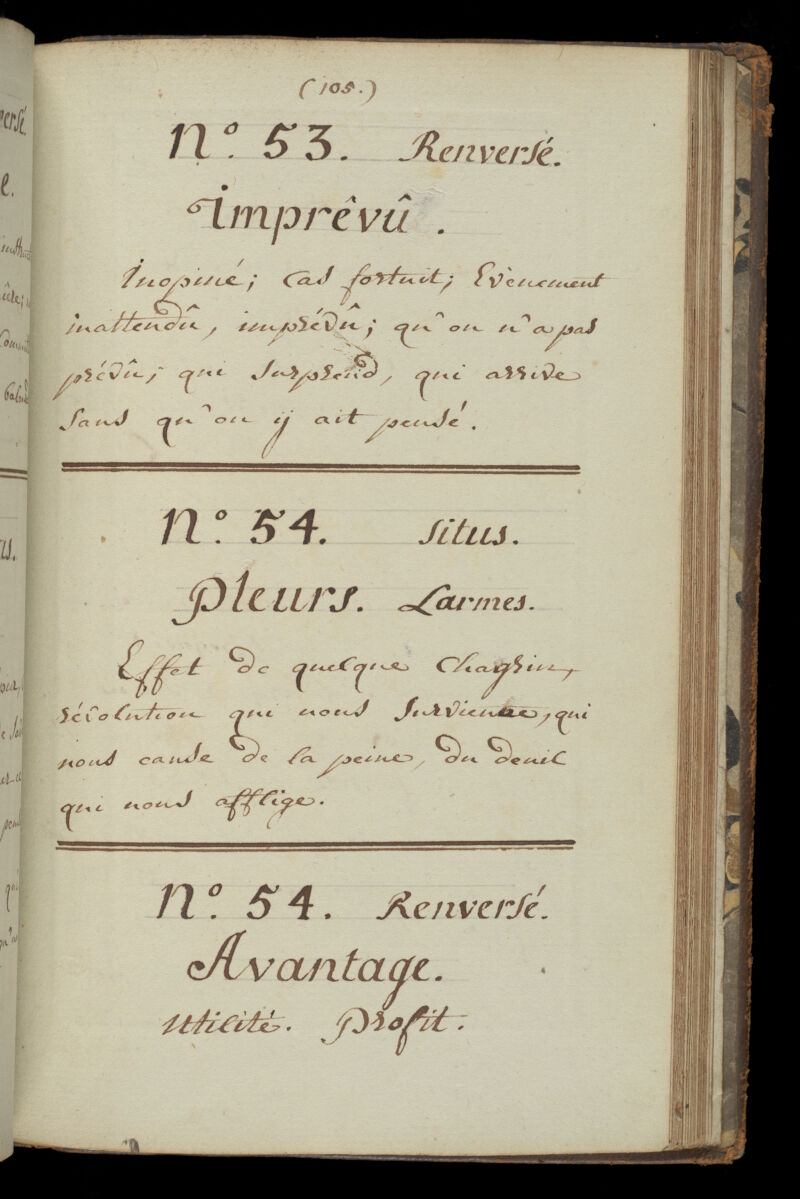 (105.)
N.º 53. Renversé.
Imprêvû.
Inopiné; cas fortuit; Evénement
inattendû, imprévû; qu'on n'a pas
prévû; qui surprend, qui arrive
sans qu'on y ait pensé.
N.º 54. Situs.
Pleurs. Larmes.
Effet de quelque chagrin,
révolution qui nous survienne, qui
nous cause de la peine, du deuil
qui nous afflige.
N.º 54. Renversé.
Avantage.
Utilité. Profit.